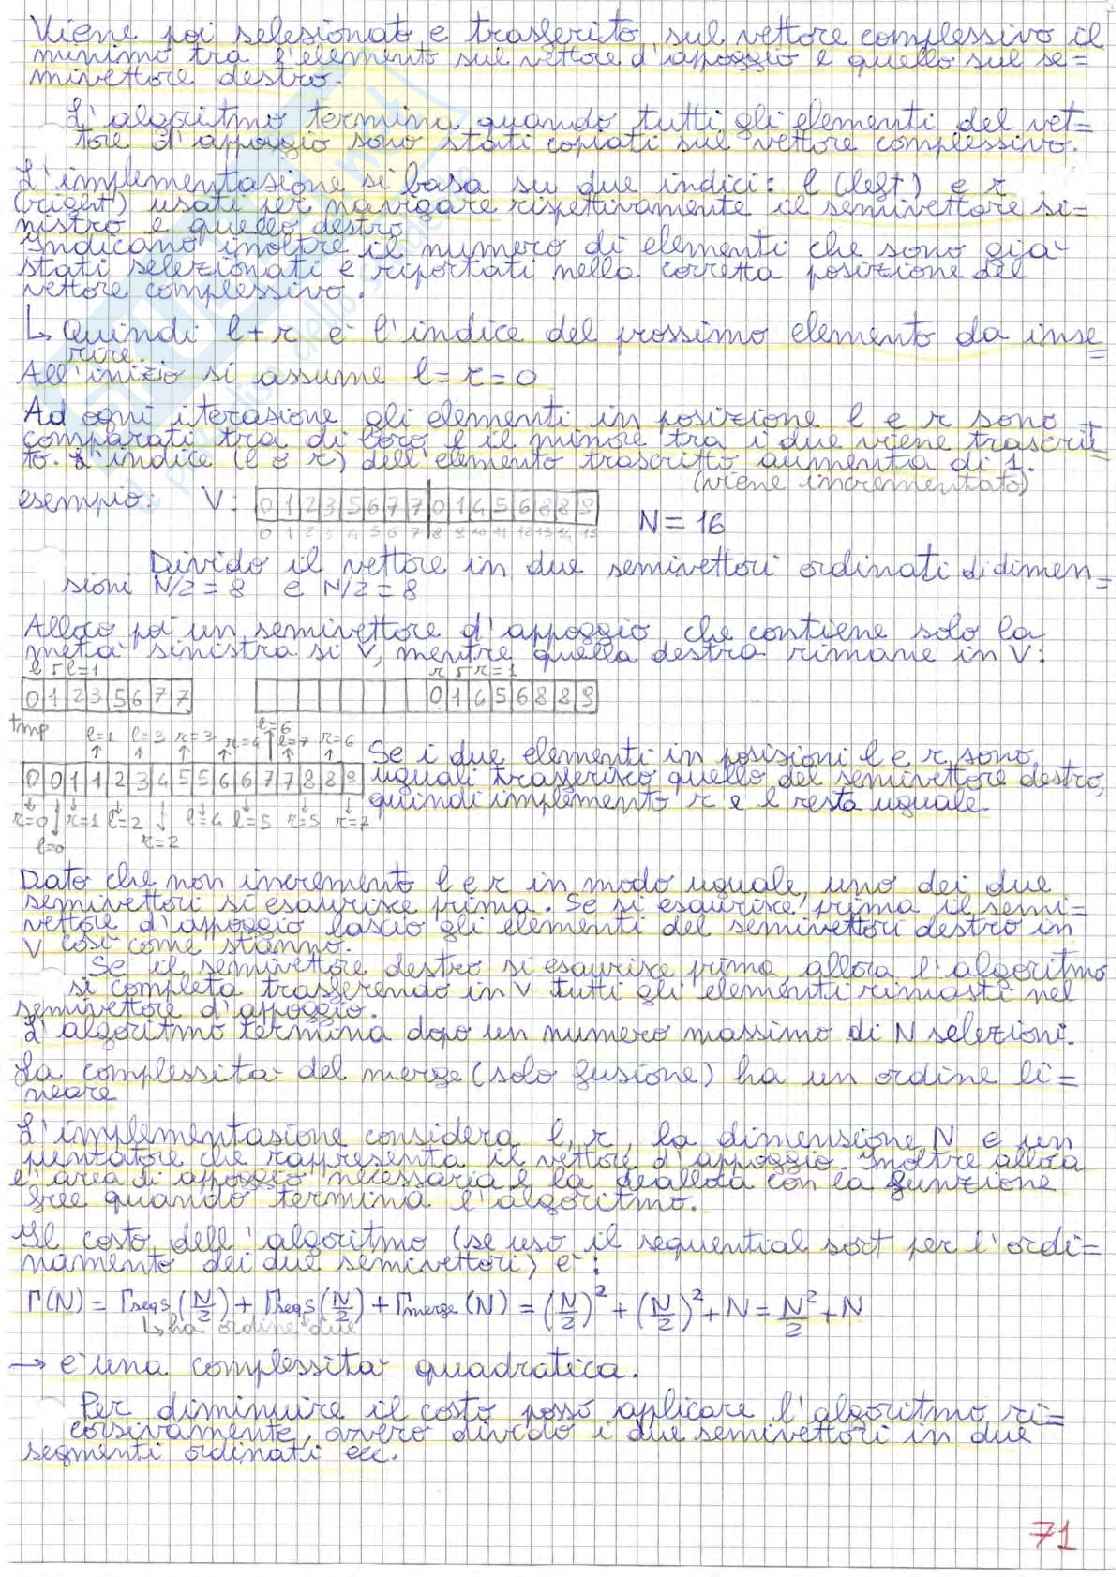 Viene poi selesionato e trasferito sul vettore complessivo il
minimo tra l'elemento sul vettore d'appoggio e quello sul se=
mivettore destro.
L'algoritmo termina quando tutti gli elementi del vet=
tore d'appoggio sono stati copiati sul vettore complessivo.
L'implementasione si basa su due indici: l (left) e r
(right) usati per navigare rispettivamente il semivettore si=
nistro e quello destro.
Indicano inoltre il numero di elementi che sono gia
stati selezionati e riportati nella corretta posizione del
vettore complessivo.
↳ Quindi l+r è l'indice del prossimo elemento da inse
rire.
All'inizio si assume l=r=0
Ad ogni iterasione gli elementi in posizione l e r sono
comparati tra di loro e il minore tra i due viene trascrit
to. L'indice (l o r) dell'elemento trascritto aumenta di 1.
(viene incrementato)
esempio: V: 0 1 2 3 5 6 7 7 0 1 4 5 6 8 8 9
0 1 2 3 4 5 6 7 8 9 10 11 12 13 14 15
N = 16
Divido il vettore in due semivettori ordinati di dimen=
sioni N/2 = 8 e N/2 = 8
Alloco poi un semivettore d'appoggio che contiene solo la
metà sinistra si V, mentre quella destra rimane in V:
l l=1 r r=1
0 1 2 3 5 6 7 7 0 1 4 5 6 8 8 9
tmp l=1 l=3 r=3 r=4 l=6 l=7 r=6
0 0 1 1 2 3 4 5 5 6 6 7 7 8 8 9
r=0 r=1 l=2 l=4 l=5 r=5 r=7
l=0 r=2
Se i due elementi in posizioni l e r sono
uguali trasferisco quello del semivettore destro,
quindi implemento r e l resta uguale.
Dato che non incremento l e r in modo uguale, uno dei due
semivettori si esaurisce prima. Se si esaurisce prima il semi=
vettore d'appoggio lascio gli elementi del semivettori destro in
V così come stanno.
Se il semivettore destro si esaurisce prima, allora l'algoritmo
si completa trasferendo in V tutti gli elementi rimasti nel
semivettore d'appoggio.
L'algoritmo termina dopo un numero massimo di N selezioni.
La complessita del merge (solo fusione) ha un ordine li=
neare
L'implementasione considera l, r, la dimensione N e un
puntatore che rappresenta il vettore d'appoggio. Inoltre alloca
l'area di appoggio necessaria e la dealloca con la funzione
free quando termina l'algoritmo.
Il costo dell'algoritmo (se uso il sequential sort per l'ordi=
namento dei due semivettori) è:
Γ(N) = Γseqs(N/2) + Γseqs(N/2) + Γmerge(N) = (N/2)² + (N/2)² + N = N²/2 + N
↳ ha ordine due
→ è una complessita quadratica.
Per diminuire il costo posso applicare l'algoritmo ri=
corsivamente, ovvero divido i due semivettori in due
segmenti ordinati ecc.
71